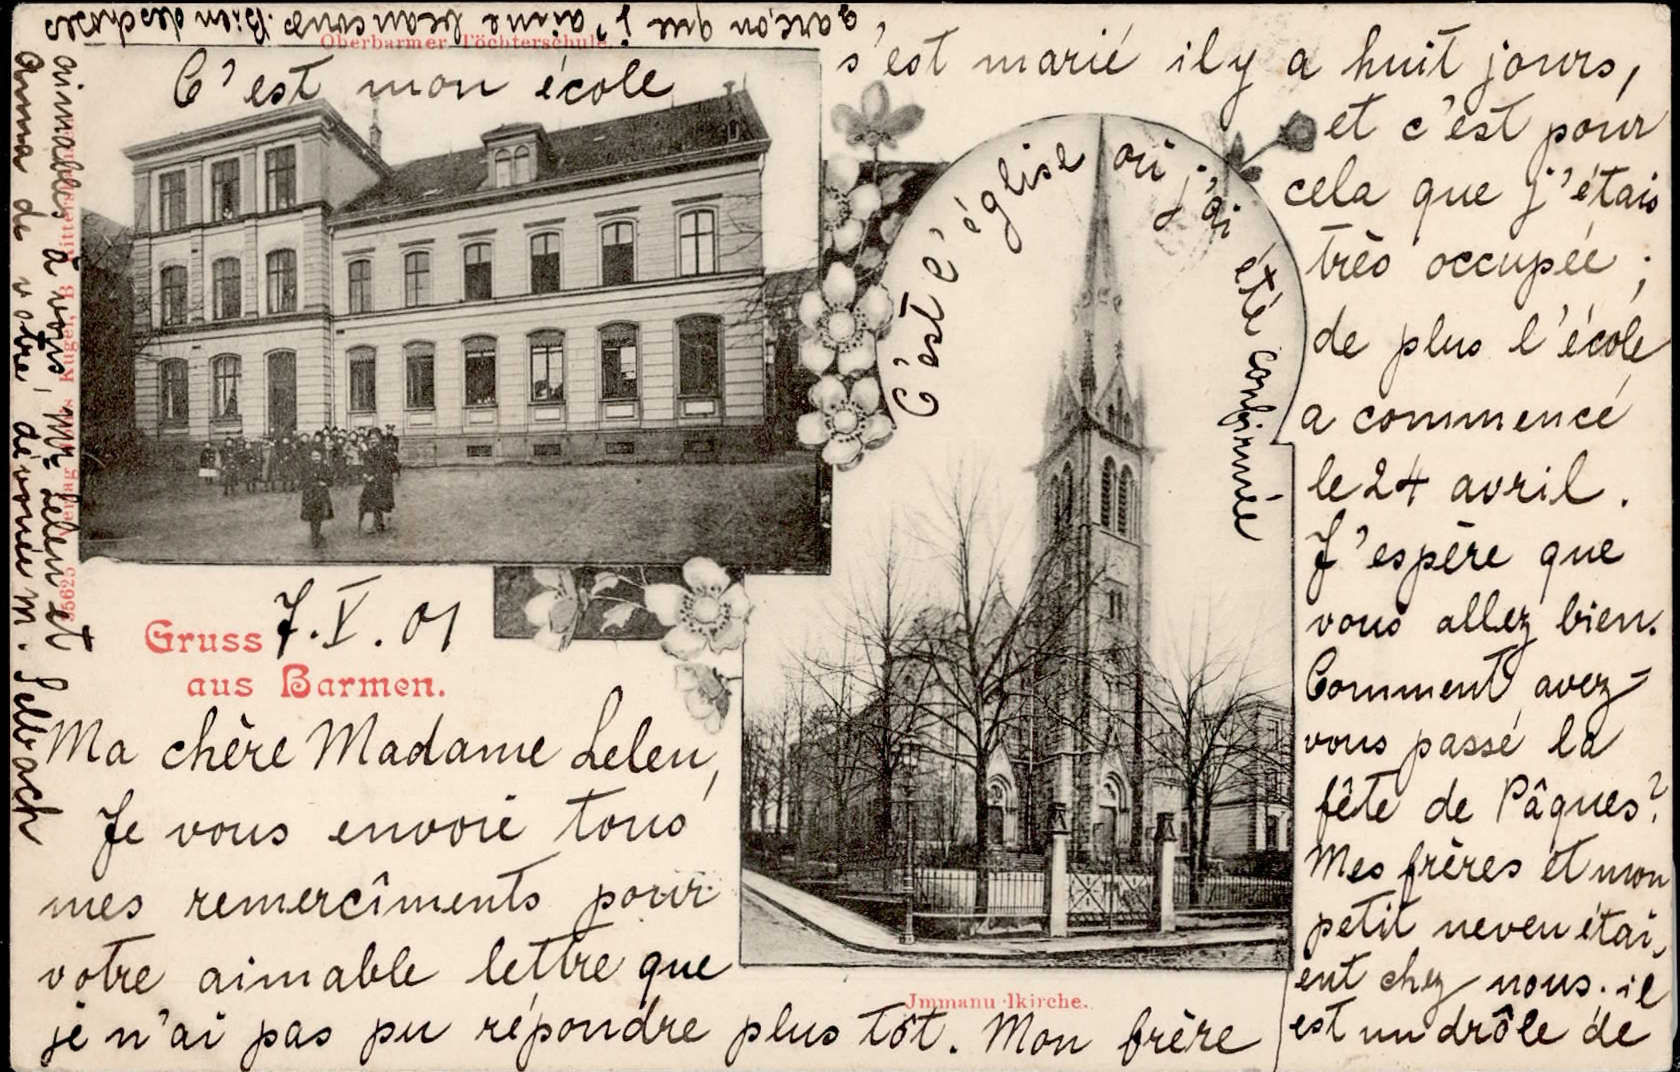 Oberbarmer Töchterschule.
C'est mon école
C'est l'église où j'ai été confirmée
Gruss
aus Barmen.
7. V. 01
Jmmanu lkirche.
Ma chère Madame Leleu,
Je vous envoie tous
mes remercîments pour
votre aimable lettre que
je n'ai pas pu répondre plus tôt. Mon frère
s'est marié il y a huit jours,
et c'est pour
cela que j'étais
très occupée ;
de plus l'école
a commencé
le 24 avril.
J'espère que
vous allez bien.
Comment avez-
vous passé la
fête de Pâques?
Mes frères et mon
petit neveu étai,
ent chez nous. il
est un drôle de
garçon que j'aime beaucoup. Bien des choses
aimables à vous, Mr Leleu et
Anna de votre dévouée M. Selbach
35625 Verlag Kugel, B